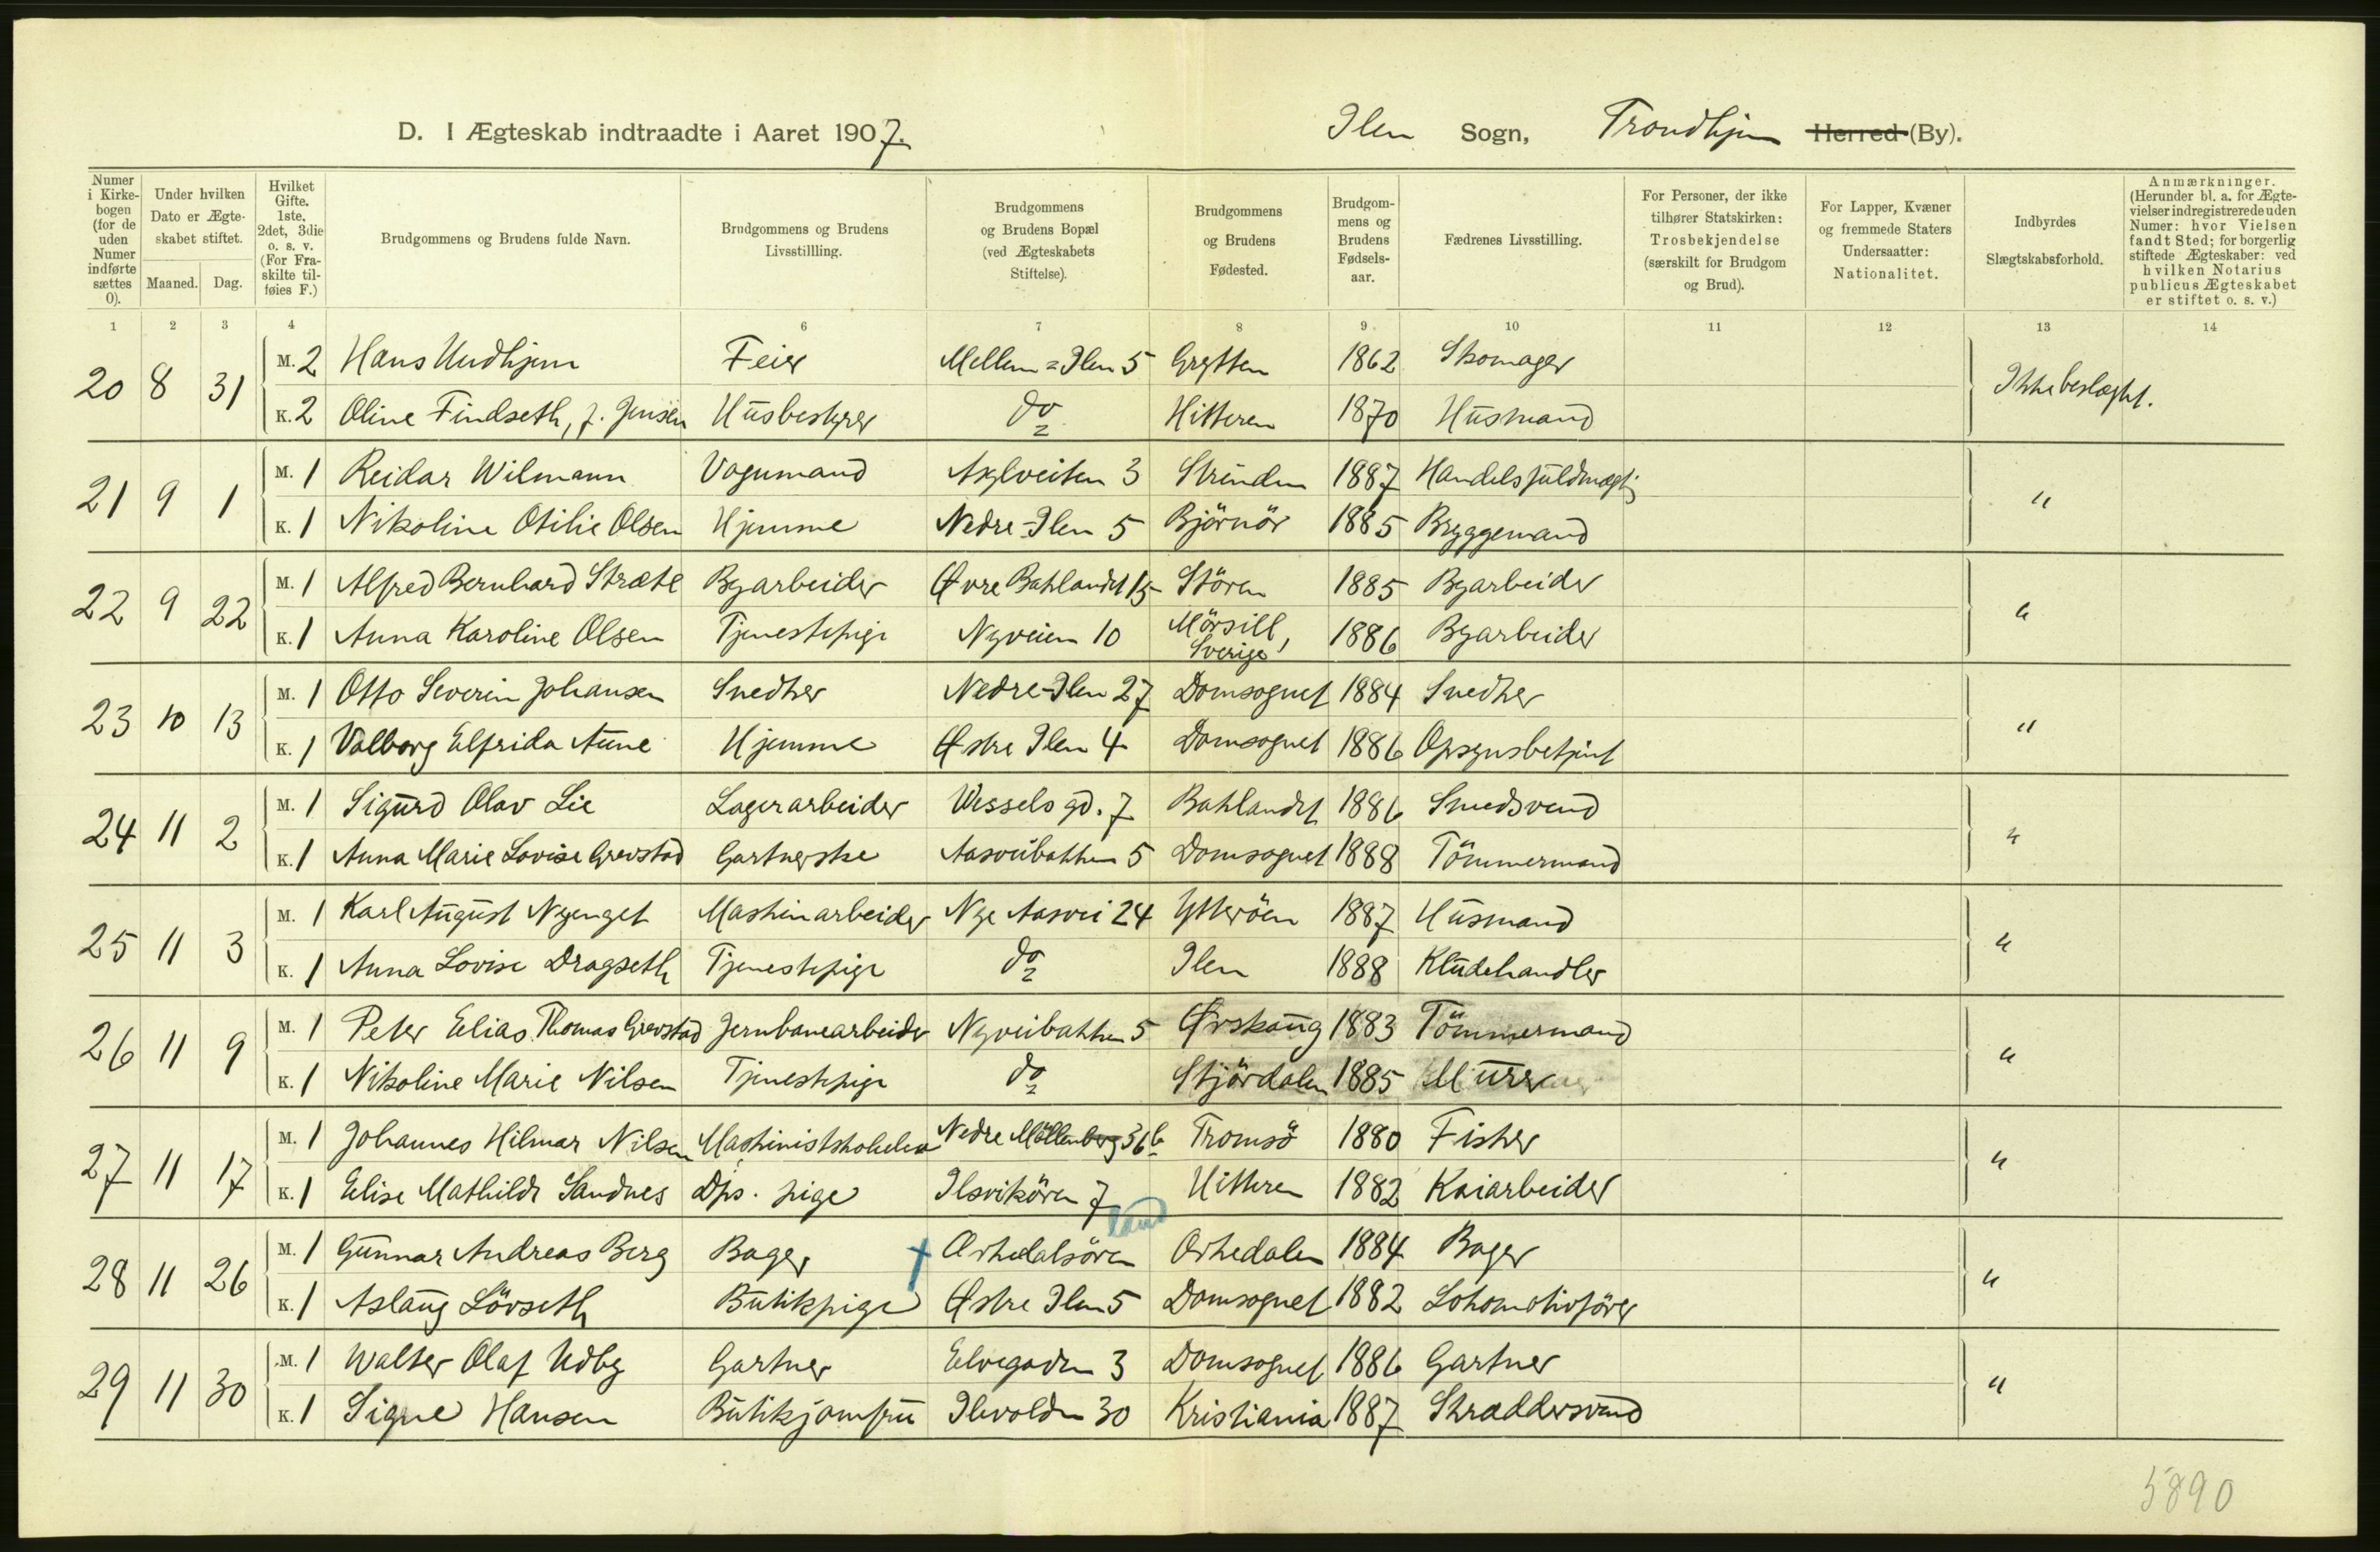 D. I Ægteskab indtraadte i Aaret 1907. Ilen Sogn, Trondhjem Herred (By).
Numer i Kirkebogen (for de uden Numer indførte sættes 0).
Under hvilken Dato er Ægteskabet stiftet.
Maaned. Dag.
Hvilket Gifte. 1ste, 2det, 3die o. s. v. (For Fraskilte tilføies F.)
Brudgommens og Brudens fulde Navn.
Brudgommens og Brudens Livsstillling.
Brudgommens og Brudens Bopæl (ved Ægteskabets Stiftelse).
Brudgommens og Brudens Fødested.
Brudgommens og Brudens Fødselsaar.
Fædrenes Livsstilling.
For Personer, der ikke tilhører Statskirken: Trosbekjendelse (særskilt for Brudgom og Brud).
For Lapper, Kvæner og fremmede Staters Undersaatter: Nationalitet.
Indbyrdes Slægtskabsforhold.
Anmærkninger. (Herunder bl. a. for Ægtevielser indregistrerede uden Numer: hvor Vielsen fandt Sted; for borgerlig stiftede Ægteskaber: ved hvilken Notarius publicus Ægteskabet er stiftet o. s. v.)
1 2 3 4 6 7 8 9 10 11 12 13 14
20 8 31 M. 2 Hans Undhjem Feier Mellem=Ilen 5 Grytten 1862 Skomager Ikke beslægt.
K. 2 Oline Findseth, f. Jensen Husbestyrer do Hitteren 1870 Husmand
21 9 1 M. 1 Reidar Wilmann Vognmand Asylveiten 3 Strinden 1887 Handelsfuldmægtig "
K. 1 Nikoline Otilie Olsen Hjemme Nedre-Ilen 5 Björnör 1885 Bryggemand
22 9 22 M. 1 Alfred Bernhard Stræte Byarbeider Øvre Baklandet 15 Stören 1885 Byarbeider "
K. 1 Anna Karoline Olsen Tjenestepige Nyveien 10 Mörsill, Sverige 1886 Byarbeider
23 10 13 M. 1 Otto Severin Johansen Snedker Nedre-Ilen 27 Domsognet 1884 Snedker "
K. 1 Valborg Elfrida Aune Hjemme Østre Ilen 4 Domsognet 1886 Opsynsbetjent
24 11 2 M. 1 Sigurd Olav Lie Lagerarbeider Wessels gd. 7 Baklandet 1886 Smedsvend "
K. 1 Anna Marie Lovise Grevstad Gartnerske Aasveibakken 5 Domsognet 1888 Tömmermand
25 11 3 M. 1 Karl August Nyenget Maskinarbeider Nye Aasvei 24 Ytteröen 1887 Husmand "
K. 1 Anna Lovise Dragseth Tjenestepige do Ilen 1888 Kludehandler
26 11 9 M. 1 Peter Elias Thomas Grevstad Jernbanearbeider Nyveibakken 5 Ørskaug 1883 Tömmermand "
K. 1 Nikoline Marie Nilsen Tjenestepige do Stjördalen 1885 Murer
27 11 17 M. 1 Johannes Hilmar Nilsen Maskinistskoleelev Nedre Möllenberg 36 b Tromsö 1880 Fisker "
K. 1 Elise Mathilde Sandnes Dps. pige Ilsvikören 7 Hitteren 1882 Kaiarbeider
land
28 11 26 M. 1 Gunnar Andreas Berg Bager † Orkedalsören Orkedalen 1884 Bager "
K. 1 Aslaug Lövseth Butikpige Østre Ilen 5 Domsognet 1882 Lokomotivförer
29 11 30 M. 1 Walter Olaf Udby Gartner Elvegaden 3 Domsognet 1886 Gartner "
K. 1 Signe Hansen Butikjomfru Ilevolden 30 Kristiania 1887 Skræddersvend
5890